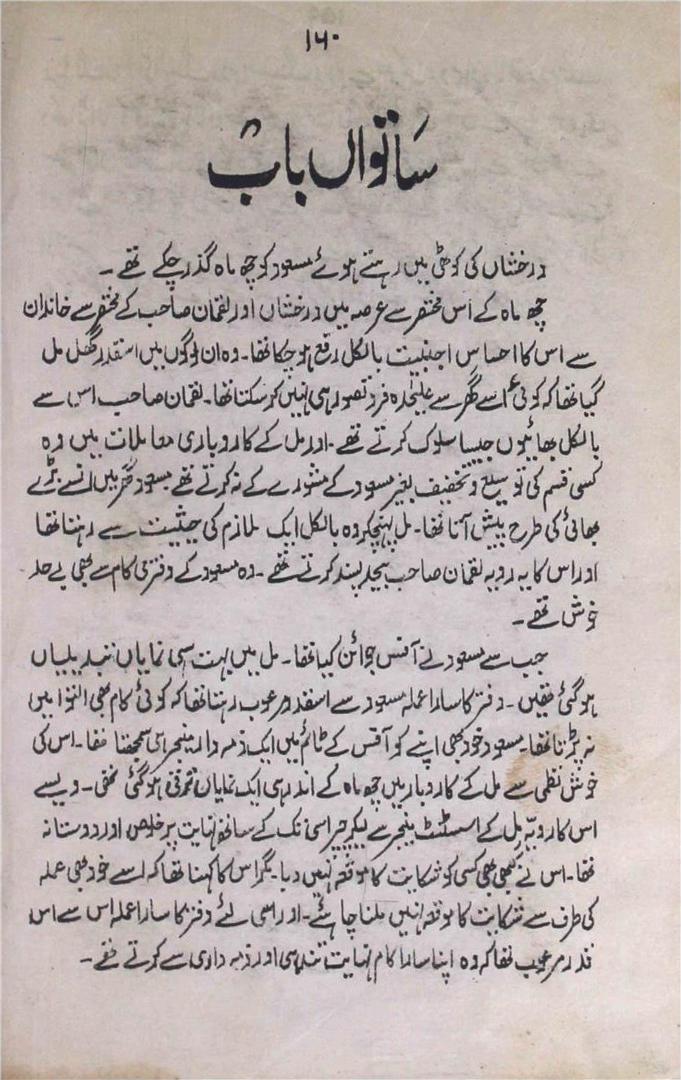 ۱۶۰
ساتواں باب
درخشاں کی کوٹھی میں رہتے ہوئے مسعود کو چھ ماہ گذر چکے تھے ۔
چھ ماہ کے اس مختصر سے عرصہ میں درخشاں اور لقمان صاحب کے مختصر سے خاندان
سے اس کا احساس اجنبیت بالکل رفع ہو چکا تھا۔ وہ ان لوگوں میں اسقدر گھل مل
گیا تھا کہ کوئی اسے گھر سے علیٰحدہ فرد تصور ہی نہیں کر سکتا تھا۔ لقمان صاحب اس سے
بالکل بھائیوں جیسا سلوک کرتے تھے ۔ اور مل کے کاروباری معاملات میں وہ
کسی قسم کی توسیع و تخفیف بغیر مسعود کے مشورے کے نہ کرتے تھے۔ مسعود گھر میں انسے بڑے
بھائی کی طرح پیش آتا تھا۔ مل پہنچکر وہ بالکل ایک ملازم کی حیثیت سے رہتا تھا
اور اس کا یہ رویہ لقمان صاحب بیحد پسند کرتے تھے ۔ وہ مسعود کے دفتری کام سے بھی بے حد
خوش تھے ۔
جب سے مسعود نے آفس جوائن کیا تھا۔ مل میں بہت سی نمایاں تبدیلیاں
ہو گئی تھیں ۔ دفتر کا سارا عملہ مسعود سے اسقدر مرعوب رہتا تھا کہ کوئی کام بھی التوا میں
نہ پڑتا تھا۔ مسعود خود بھی اپنے کو آفس کے ٹائم میں ایک ذمہ دار مینجر ہی سمجھتا تھا۔ اس کی
خوش نظمی سے مل کے کاروبار میں چھ ماہ کے اندر ہی ایک نمایاں ترقی ہو گئی تھی ۔ ویسے
اس کا رویہ مل کے اسسٹنٹ مینجر سے لیکر چپراسی تک کے ساتھ نہایت پرخلوص اور دوستانہ
تھا۔ اس نے کبھی بھی کسی کو شکایت کا موقعہ نہیں دیا۔ مگر اس کا کہنا تھا کہ اسے خود بھی عملہ
کی طرف سے شکایت کا موقعہ نہیں ملنا چاہئے ۔ اور اسی لئے دفتر کا سارا عملہ اس سے اس
قدر مرعوب تھا کہ وہ اپنا سارا کام نہایت تندہی اور ذمہ داری سے کرتے تھے ۔